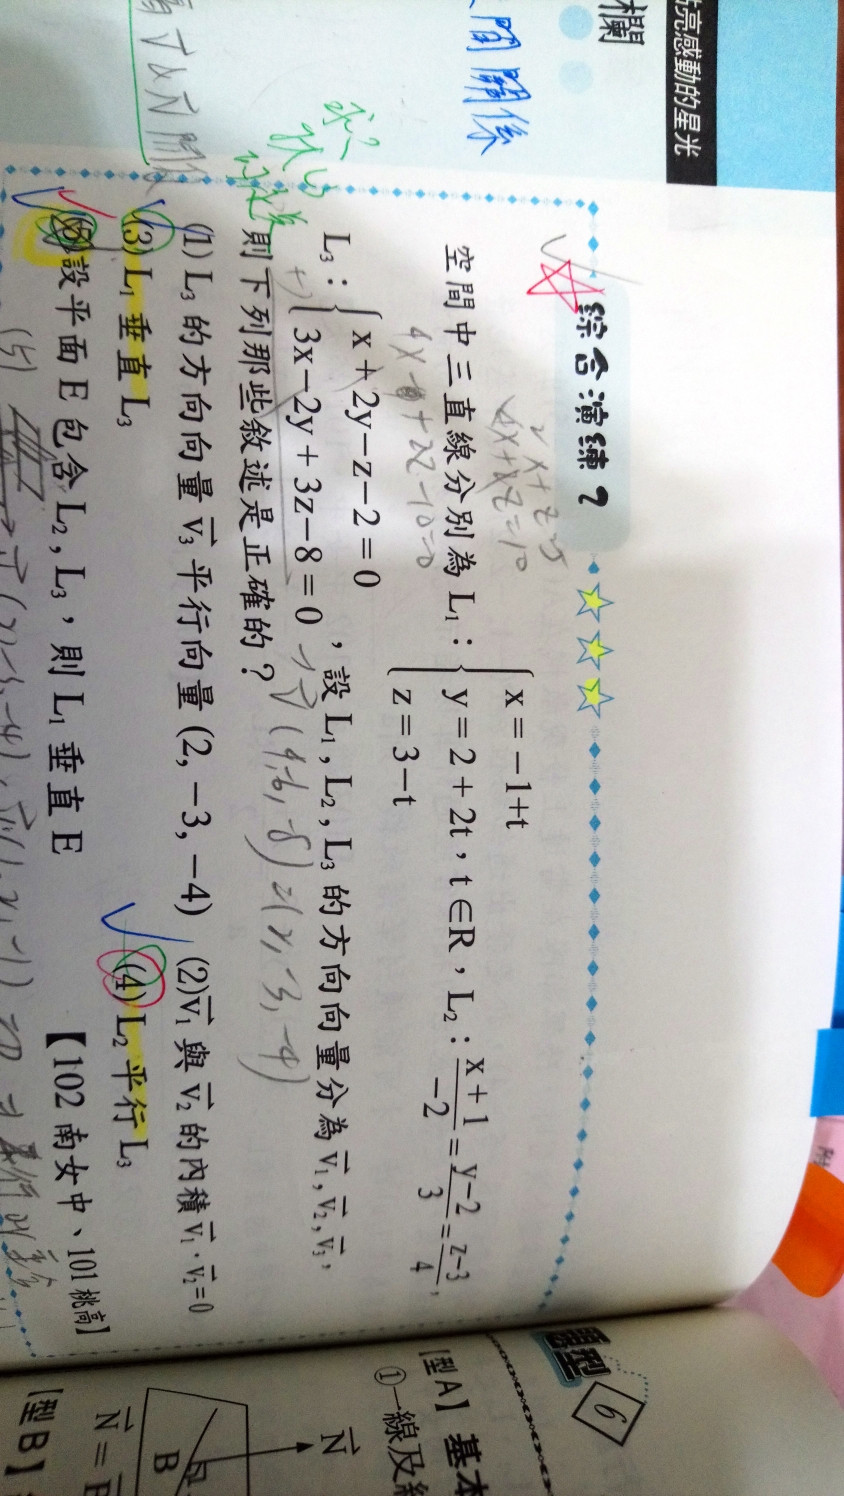 亮感動的星光
欄
間關係
綜合演練 2
2x+z=5
4x+2z=10
空間中三直線分別為 L₁：{ x=−1+t
y=2+2t，t∈R，L₂：(x+1)/−2=(y−2)/3=(z−3)/4，
z=3−t
L₃：{ x+2y−z−2=0
3x−2y+3z−8=0，設 L₁, L₂, L₃ 的方向向量分為 v₁, v₂, v₃，
則下列那些敘述是正確的？
(1) L₃ 的方向向量 v₃ 平行向量 (2, −3, −4) (2) v₁ 與 v₂ 的內積 v₁・v₂=0
(3) L₁ 垂直 L₃ (4) L₂ 平行 L₃
(5) 設平面 E 包含 L₂, L₃，則 L₁ 垂直 E 【102 南女中、101 桃高】
(5)
題型 6
【型A】基本
①一線及
N
B
N =
【型B】